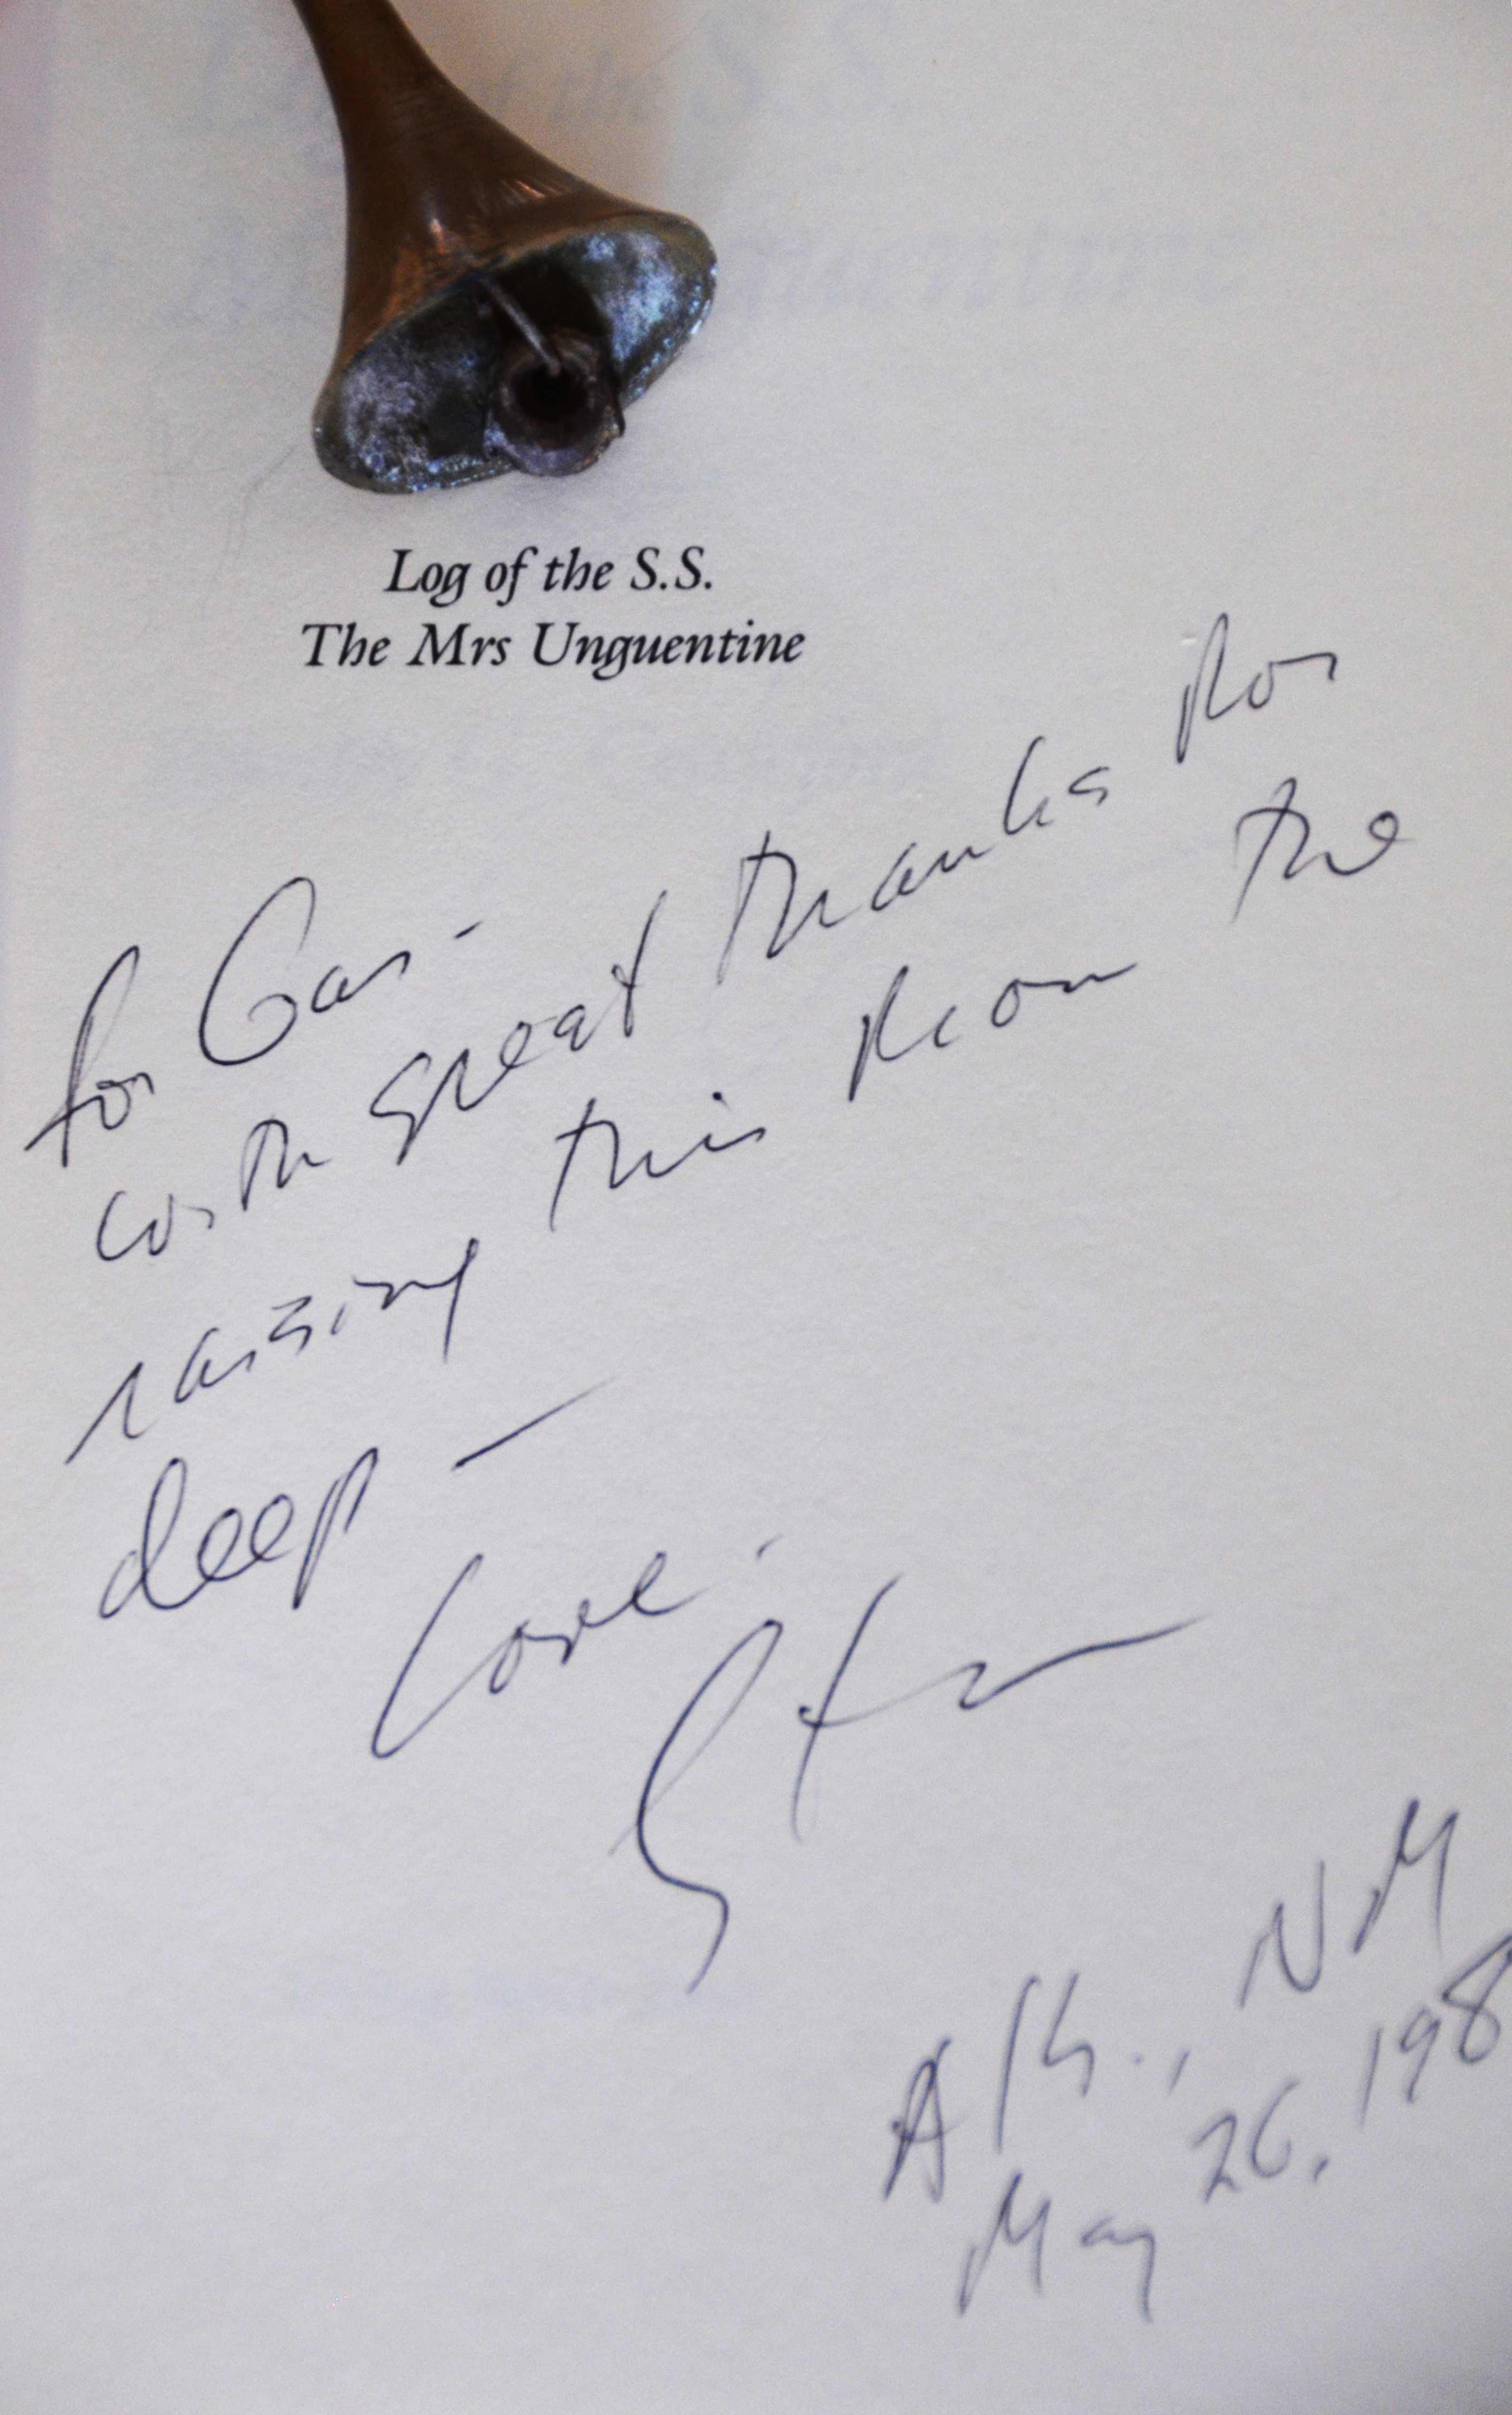 Log of the S.S.
The Mrs Unguentine
for Gus -
with great thanks for
raising this from the
deep —
Love -
Alb., NM
May 26, 198